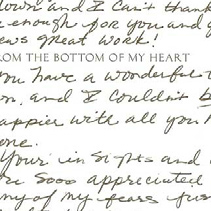 down and I can't thank
enough for you and y
ews great work!
FROM THE BOTTOM OF MY HEART
you have a wonderful t
and I couldn't b
appier with all you h
one.
Your in sights and
Sooo appreciated
my of my fears fus